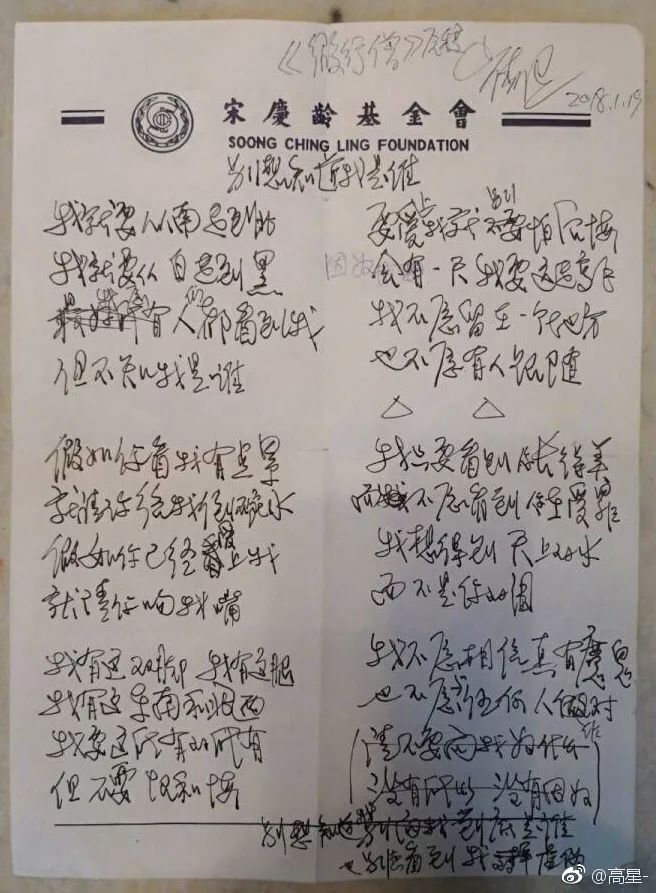 《假行僧》原稿
2018.1.19
宋慶齡基金會
SOONG CHING LING FOUNDATION
别想知道我是谁
我就要从南走到北
我就要从白走到黑
有人们都看到我
但不知我是谁
假如你看我有点累
就请你给我倒碗水
假如你已经爱上我
就请你吻我嘴
我有这双脚 我有这腿
我有这东南和北西
我要这所有的所有
但不要恨和悔
要爱上我就别怕后悔
因为
会有一天我要远走高飞
我不愿留在一个地方
也不愿有人跟随
△ △
我只要看到你长得美
而我不愿看到你在受罪
我想得到天上的水
而不是你的泪
我不愿相信真有魔鬼
也不愿与任何人作对
(请不要问我为什么
没有所以 没有因为)
别想知道我到底是谁
也别看到我虚伪
@高星-